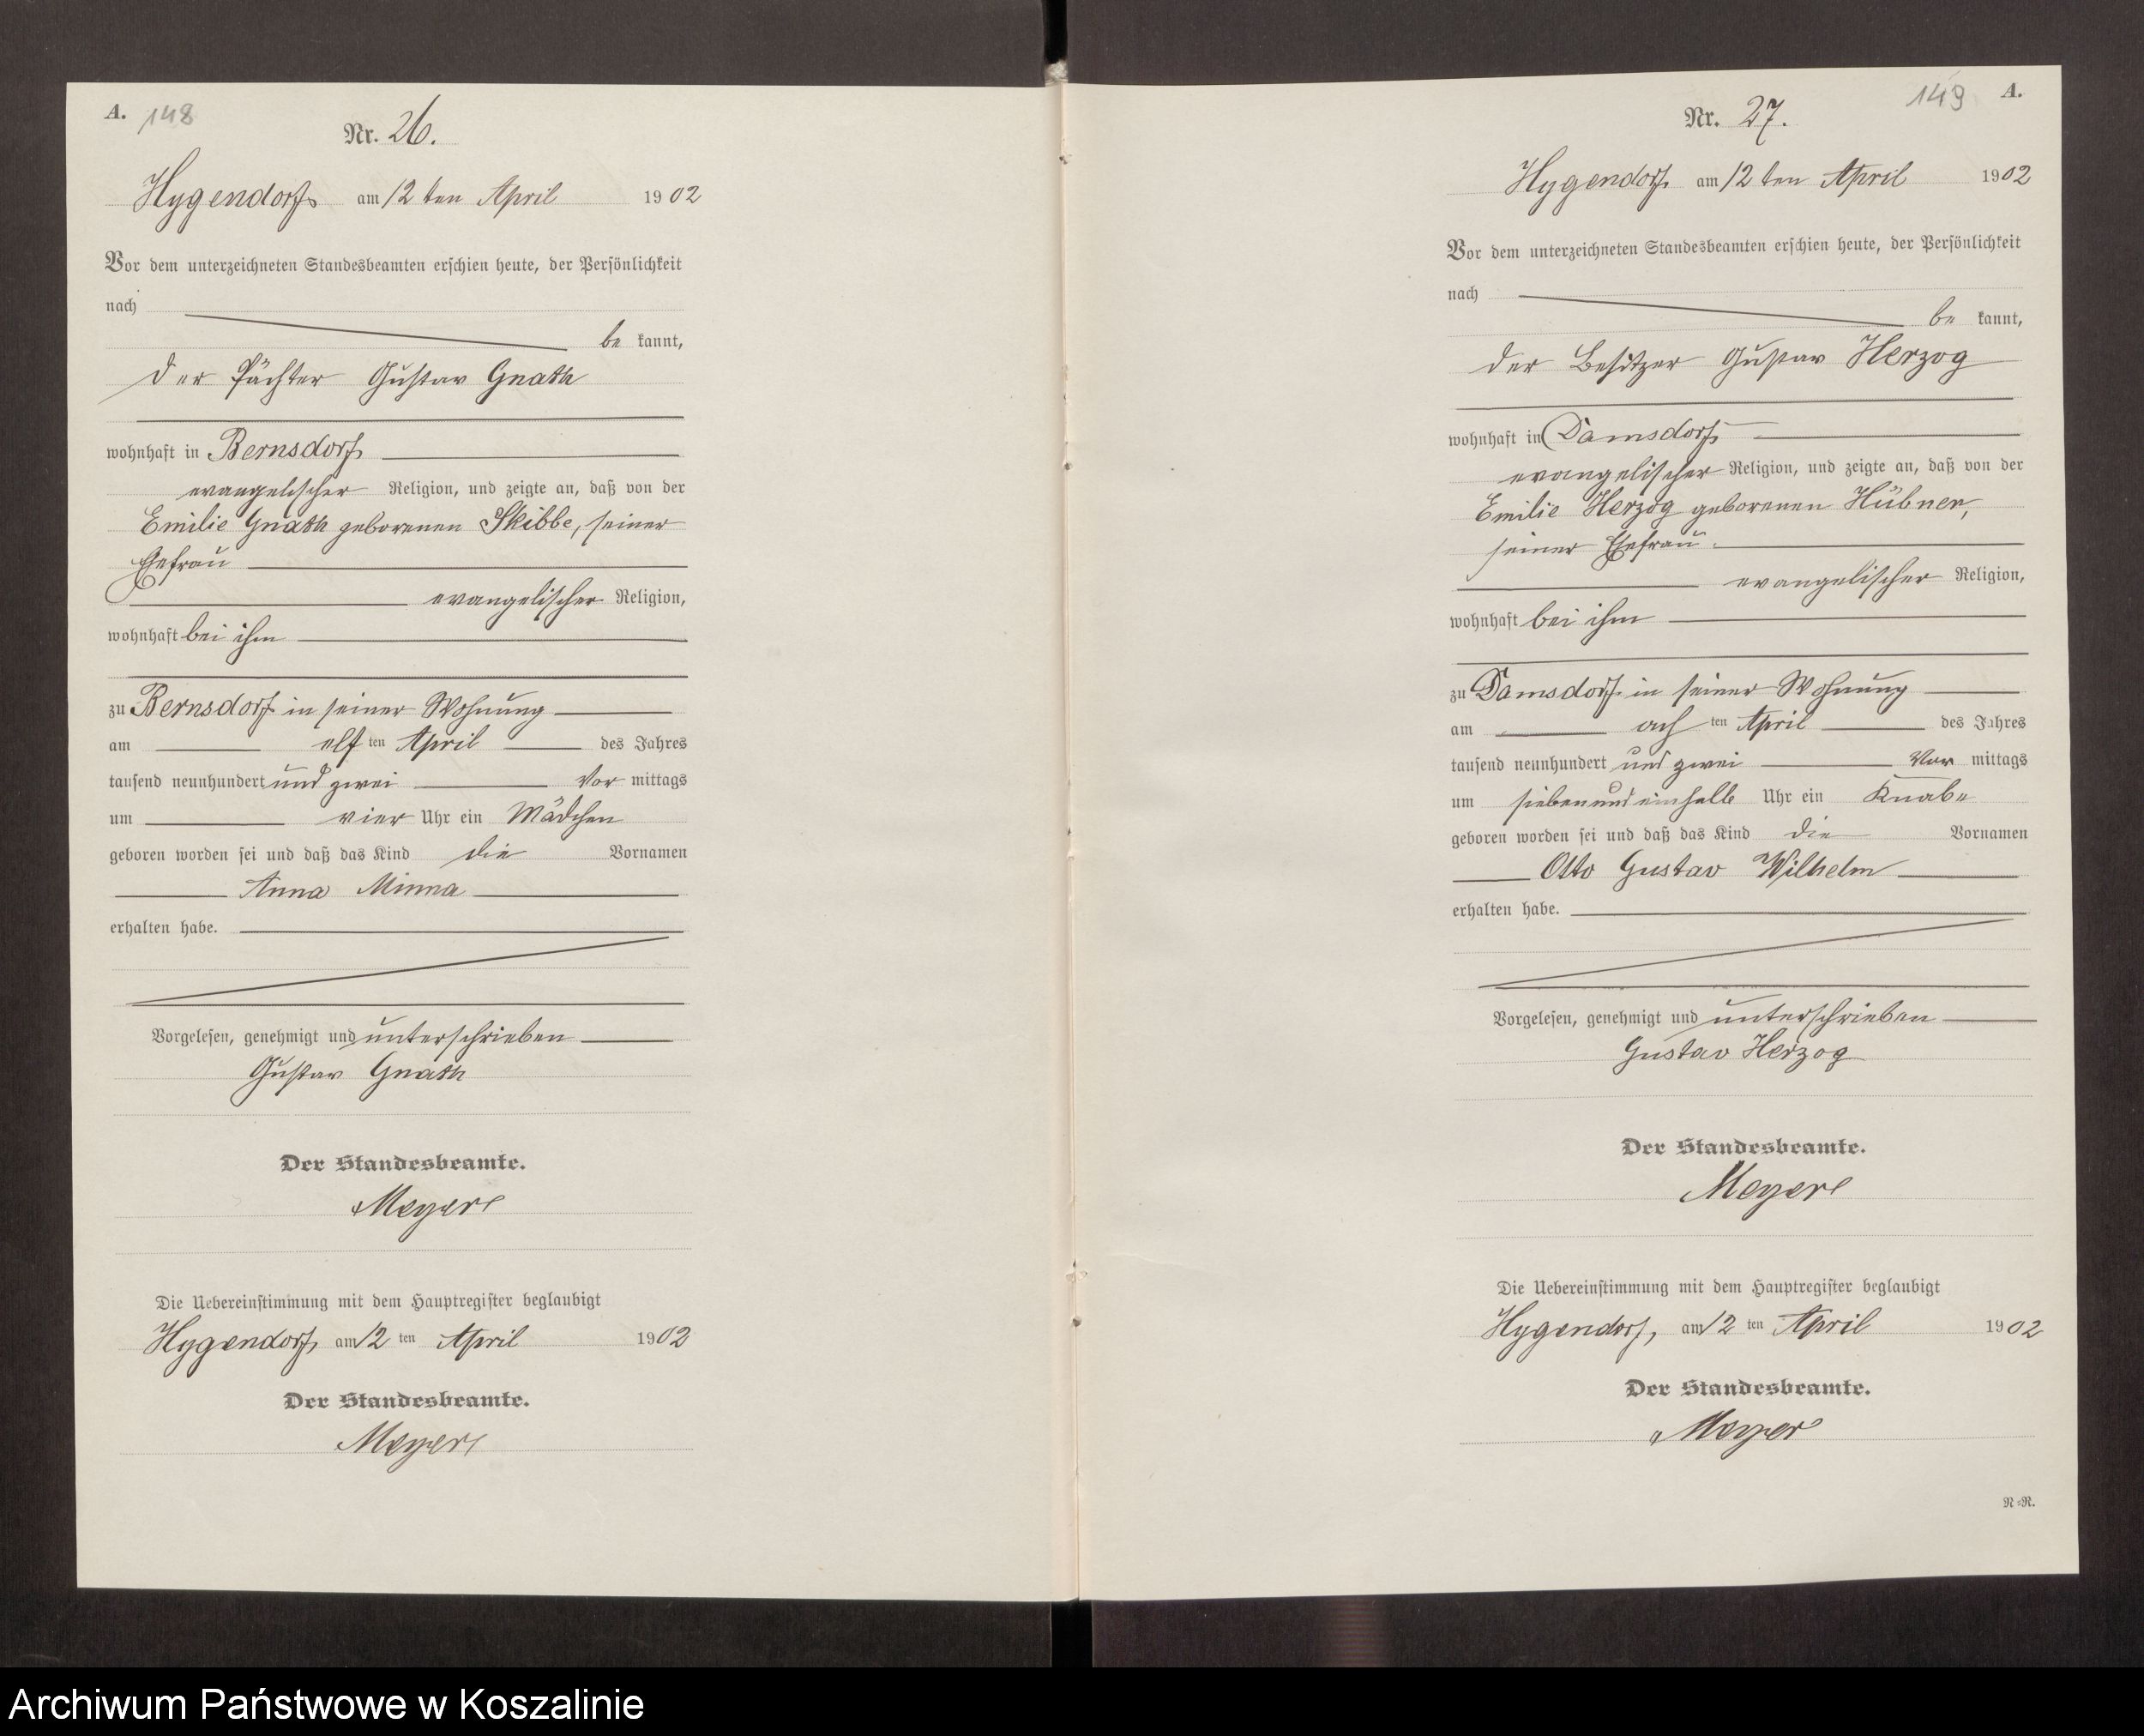 A. 148
Nr. 26.
Hygendorf am 12 ten April 1902
Vor dem unterzeichneten Standesbeamten erschien heute, der Persönlichkeit
nach
be kannt,
der Pächter Gustav Gnath
wohnhaft in Bernsdorf
evangelischer Religion, und zeigte an, daß von der
Emilie Gnath geborenen Skibbe, seiner
Ehefrau
evangelischer Religion,
wohnhaft bei ihm
zu Bernsdorf in seiner Wohnung
am elf ten April des Jahres
tausend neunhundert und zwei Vor mittags
um vier Uhr ein Mädchen
geboren worden sei und daß das Kind die Vornamen
Anna Minna
erhalten habe.
Vorgelesen, genehmigt und unterschrieben
Gustav Gnath
Der Standesbeamte.
Meyer
Die Uebereinstimmung mit dem Hauptregister beglaubigt
Hygendorf, am 12 ten April 1902
Der Standesbeamte.
Meyer
149 A.
Nr. 27.
Hygendorf am 12 ten April 1902
Vor dem unterzeichneten Standesbeamten erschien heute, der Persönlichkeit
nach
be kannt,
der Besitzer Gustav Herzog
wohnhaft in Damsdorf
evangelischer Religion, und zeigte an, daß von der
Emilie Herzog geborenen Hübner,
seiner Ehefrau
evangelischer Religion,
wohnhaft bei ihm
zu Damsdorf in seiner Wohnung
am ach ten April des Jahres
tausend neunhundert und zwei Vor mittags
um siebenundeinhalb Uhr ein Knabe
geboren worden sei und daß das Kind die Vornamen
Otto Gustav Wilhelm
erhalten habe.
Vorgelesen, genehmigt und unterschrieben
Gustav Herzog
Der Standesbeamte.
Meyer
Die Uebereinstimmung mit dem Hauptregister beglaubigt
Hygendorf, am 12 ten April 1902
Der Standesbeamte.
Meyer
N=N.
Archiwum Państwowe w Koszalinie